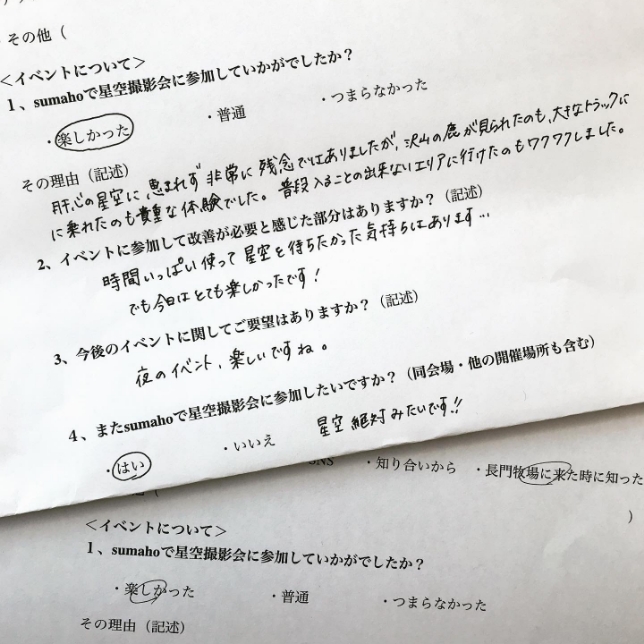 ・その他（
＜イベントについて＞
１、sumahoで星空撮影会に参加していかがでしたか？
・楽しかった ・普通 ・つまらなかった
その理由（記述）
肝心の星空に恵まれず非常に残念ではありましたが、沢山の鹿が見られたのも、大きなトラックに
に乗れたのも貴重な体験でした。普段入ることの出来ないエリアに行けたのもワクワクしました。
2、イベントに参加して改善が必要と感じた部分はありますか？（記述）
時間いっぱい使って星空を待ちたかった気持ちはあります…
でも今日はとても楽しかったです！
3、今後のイベントに関してご要望はありますか？（記述）
夜のイベント、楽しいですね。
４、またsumahoで星空撮影会に参加したいですか？（同会場・他の開催場所も含む）
・はい ・いいえ 星空絶対みたいです!!
SNS ・知り合いから ・長門牧場に来た時に知った
）
＜イベントについて＞
１、sumahoで星空撮影会に参加していかがでしたか？
・楽しかった ・普通 ・つまらなかった
その理由（記述）